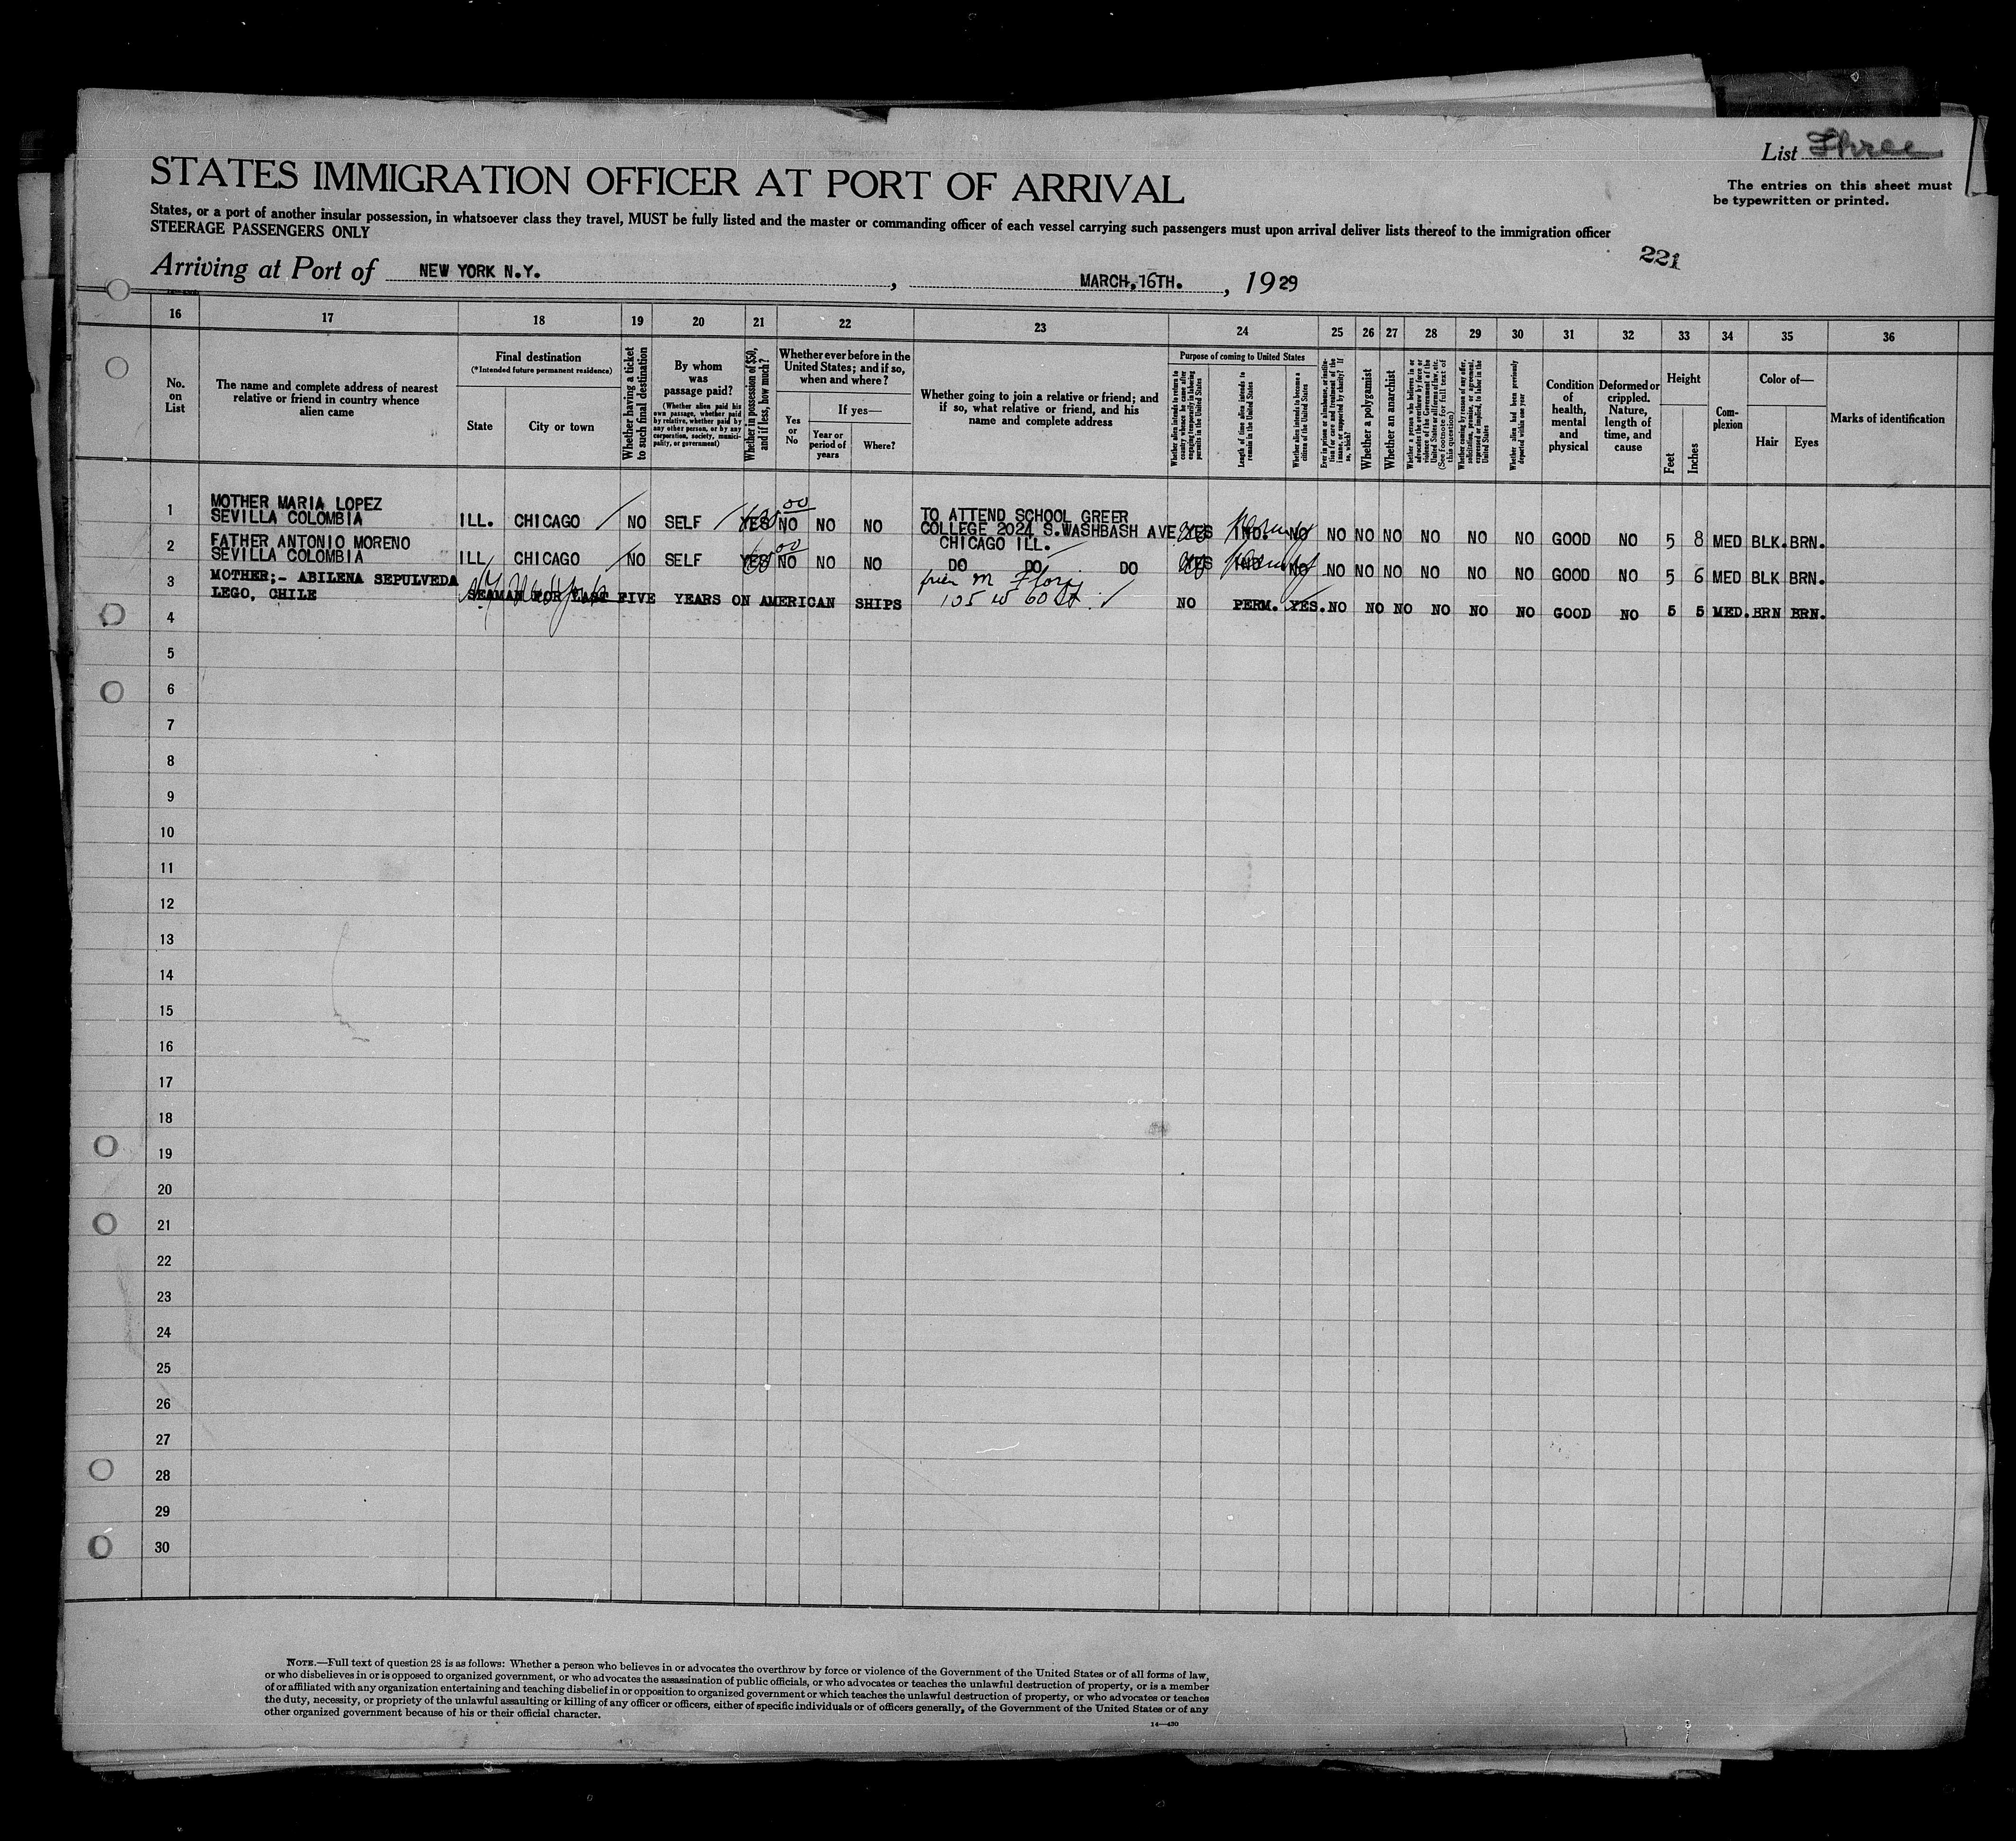 List Three
The entries on this sheet must
be typewritten or printed.
STATES IMMIGRATION OFFICER AT PORT OF ARRIVAL
States, or a port of another insular possession, in whatsoever class they travel, MUST be fully listed and the master or commanding officer of each vessel carrying such passengers must upon arrival deliver lists thereof to the immigration officer
STEERAGE PASSENGERS ONLY
221
Arriving at Port of NEW YORK N.Y. , MARCH,16TH. , 1929
16 17 18 19 20 21 22 23 24 25 26 27 28 29 30 31 32 33 34 35 36
No.
on
List
The name and complete address of nearest
relative or friend in country whence
alien came
Final destination
(*Intended future permanent residence)
State
City or town
Whether having a ticket
to such final destination
By whom
was
passage paid?
(Whether alien paid his
own passage, whether paid
by relative, whether paid by
any other person, or by any
corporation, society, munici-
pality, or government)
Whether in possession of $50,
and if less, how much?
Whether ever before in the
United States; and if so,
when and where?
Yes
or
No
If yes—
Year or
period of
years
Where?
Whether going to join a relative or friend; and
if so, what relative or friend, and his
name and complete address
Purpose of coming to United States
Whether alien intends to return to
country whence he came after
engaging temporarily in laboring
pursuits in the United States
Length of time alien intends to
remain in the United States
Whether alien intends to become a
citizen of the United States
Ever in prison or almshouse, or institu-
tion for care and treatment of the
insane, or supported by charity? If
so, which?
Whether a polygamist
Whether an anarchist
Whether a person who believes in or
advocates the overthrow by force or
violence of the Government of the
United States or all forms of law, etc.
(See footnote for full text of
this question)
Whether coming by reason of any offer,
solicitation, promise, or agreement,
expressed or implied, to labor in the
United States
Whether alien had been previously
deported within one year
Condition
of
health,
mental
and
physical
Deformed or
crippled.
Nature,
length of
time, and
cause
Height
Feet
Inches
Com-
plexion
Color of—
Hair
Eyes
Marks of identification
1 MOTHER MARIA LOPEZ
SEVILLA COLOMBIA ILL. CHICAGO NO SELF YES NO NO NO TO ATTEND SCHOOL GREER
COLLEGE 2024 S.WASHBASH AVE YES IND. NO NO NO NO NO NO NO GOOD NO 5 8 MED BLK. BRN.
CHICAGO ILL.
2 FATHER ANTONIO MORENO
SEVILLA COLOMBIA ILL CHICAGO NO SELF YES NO NO NO DO DO DO YES IND NO NO NO NO NO NO NO GOOD NO 5 6 MED BLK BRN.
3 MOTHER;- ABILENA SEPULVEDA
LEGO, CHILE SEAMAN FOR LAST FIVE YEARS ON AMERICAN SHIPS
105 W 60 St. NO PERM. YES. NO NO NO NO NO NO GOOD NO 5 5 MED. BRN BRN.
4
5
6
7
8
9
10
11
12
13
14
15
16
17
18
19
20
21
22
23
24
25
26
27
28
29
30
NOTE.—Full text of question 28 is as follows: Whether a person who believes in or advocates the overthrow by force or violence of the Government of the United States or of all forms of law,
or who disbelieves in or is opposed to organized government, or who advocates the assassination of public officials, or who advocates or teaches the unlawful destruction of property, or is a member
of or affiliated with any organization entertaining and teaching disbelief in or opposition to organized government or which teaches the unlawful destruction of property, or who advocates or teaches
the duty, necessity, or propriety of the unlawful assaulting or killing of any officer or officers, either of specific individuals or of officers generally, of the Government of the United States or of any
other organized government because of his or their official character.
14—430